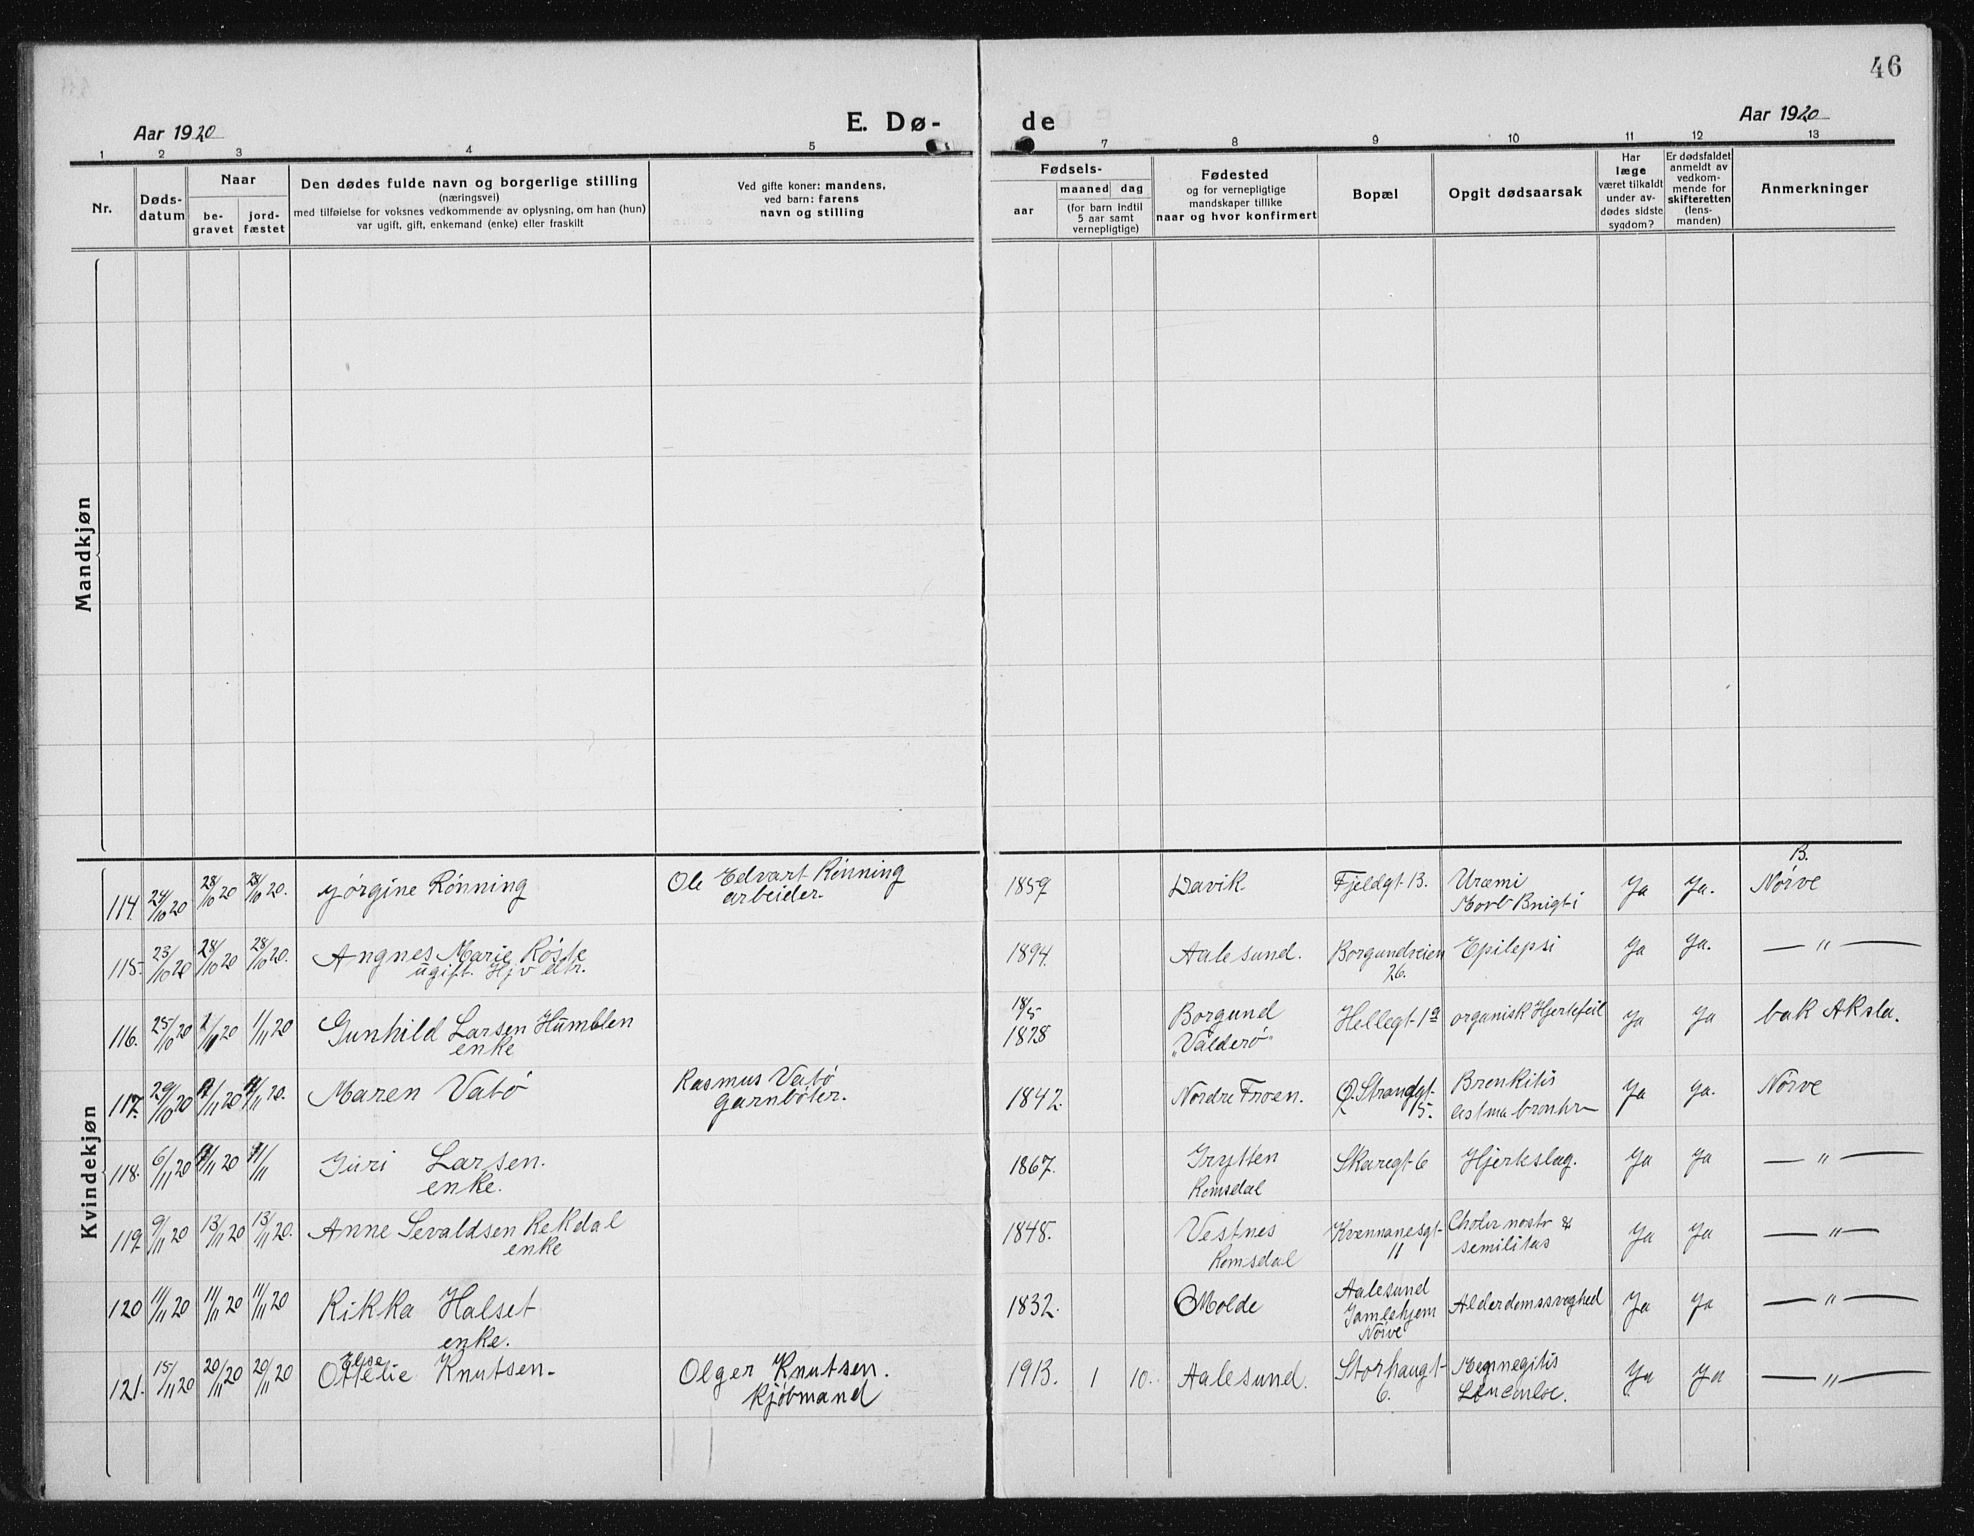 46
Aar 1920
E. Dø-
de
Aar 1920
1 2 3 4 5 7 8 9 10 11 12 13
Nr.
Døds-
datum
Naar
be-
gravet
jord-
fæstet
Den dødes fulde navn og borgerlige stilling
(næringsvei)
med tilføielse for voksnes vedkommende av oplysning, om han (hun)
var ugift, gift, enkemand (enke) eller fraskilt
Ved gifte koner: mandens,
ved barn: farens
navn og stilling
Fødsels-
aar
maaned dag
(for barn indtil
5 aar samt
vernepligtige)
Fødested
og for vernepligtige
mandskaper tillike
naar og hvor konfirmert
Bopæl
Opgit dødsaarsak
Har
læge
været tilkaldt
under av-
dødes sidste
sygdom?
Er dødsfaldet
anmeldt av
vedkom-
mende for
skifteretten
(lens-
manden)
Anmerkninger
Mandkjøn
Kvindekjøn
114 24/10 20 28/10 20 28/10 20. Jörgine Rönning
Ole Edvart Rönning
arbeider.
1859 Davik Fjeldgt 13. Uræmi
Morb Brigti
Ja Ja. B.
Nörve
115. 23/10 20 28/10 20 28/10 20. Angnes Marie Röste
ugift. Hjv dtr.
1894. Aalesund. Borgundveien
26.
Epilepsi Ja Ja. — " —
116. 25/10 20 1/11 20 1/11 20 Gunhild Larsen Humblen
enke
18/5
1828
Borgund
"Valderö"
Hellegt 1a organisk Hjertefeil Ja Ja bak Aksla.
117. 29/10 20 /11 20 /11 20. Maren Vatö
Rasmus Vatö
garnböter.
1842. Nordre Froen. Ø. Strandgt
5.
Bronkitis
astma bronkr
Ja Ja. Nörve
118. 6/11 20 11/11 20 11/11 Guri Larsen.
enke.
1867. Grytten
Romsdal
Skaregt 6 Hjerteslag. Ja Ja — " —
119. 9/11 20 13/11 20 13/11 20. Anne Sevaldsen Rekdal
enke
1848. Vestnes
Romsdal
Kvennanesgt
11
Choler nostr &
semilitas
Ja Ja — " —
120 11/11 20 11/11 20 11/11 20 Rikka Halset
enke.
1832. Molde Aalesund
Gamlehjem
Nörve
Alderdomssvaghed Ja Ja — " —
121. 15/11 20 20/11 20 20/11 20 Else
Ottelie Knutsen.
Olger Knutsen.
Kjöbmand
1913. 1 10. Aalesund. Storhaugt
6.
Mennegitis
Ja Ja — " —